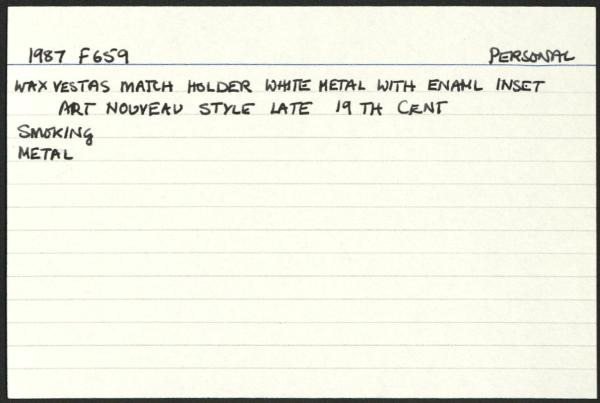 1987 F659 PERSONAL
WAX VESTAS MATCH HOLDER WHITE METAL WITH ENAML INSET
ART NOUVEAU STYLE LATE 19 TH CENT
SMOKING
METAL